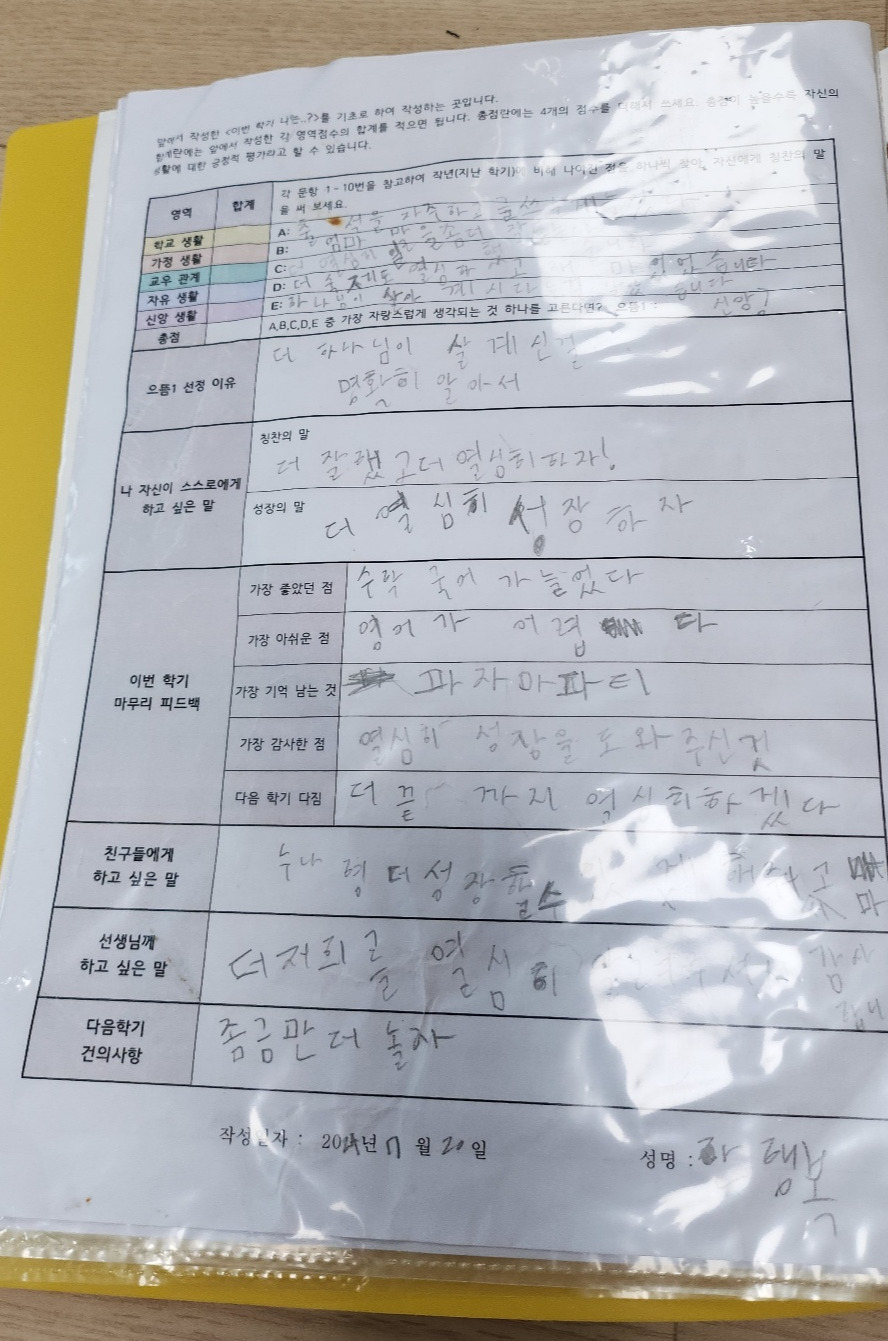 앞에서 작성한 <이번 학기 나는..?>를 기초로 하여 작성하는 곳입니다.
합계란에는 앞에서 작성한 각 영역점수의 합계를 적으면 됩니다. 총점란에는 4개의 점수를 더해서 쓰세요. 총점이 높을수록 자신의
생활에 대한 긍정적 평가라고 할 수 있습니다.
영역
합계
각 문항 1-10번을 참고하여 작년(지난 학기)에 비해 나아진 점을 하나씩 찾아, 자신에게 칭찬의 말
을 써 보세요.
학교 생활
A:
가정 생활
B: 엄마 마음을 좀더
교우 관계
C: 더 열심히
자유 생활
D: 더 숙제도 열심히
신앙 생활
E: 하나님이 살아 계시다는
총점
A,B,C,D,E 중 가장 자랑스럽게 생각되는 것 하나를 고른다면? 으뜸1 : 신앙
으뜸1 선정 이유
더 하나님이 살 계신걸
명확히 알아서
나 자신이 스스로에게
하고 싶은 말
칭찬의 말
더 잘했고 더 열심히 하자!
성장의 말
더 열심히 성장하자
이번 학기
마무리 피드백
가장 좋았던 점
수학 국어가 늘었다
가장 아쉬운 점
영어가 어렵다
가장 기억 남는 것
파자마파티
가장 감사한 점
열심히 성장을 도와주신것
다음 학기 다짐
더 끝까지 역시히하겠다
친구들에게
하고 싶은 말
누나 형 더 성장할수
선생님께
하고 싶은 말
더 저희를 열심히 감사
다음학기
건의사항
좀금만 더 놀자
작성일자 : 2024년 7월 20일
성명 :